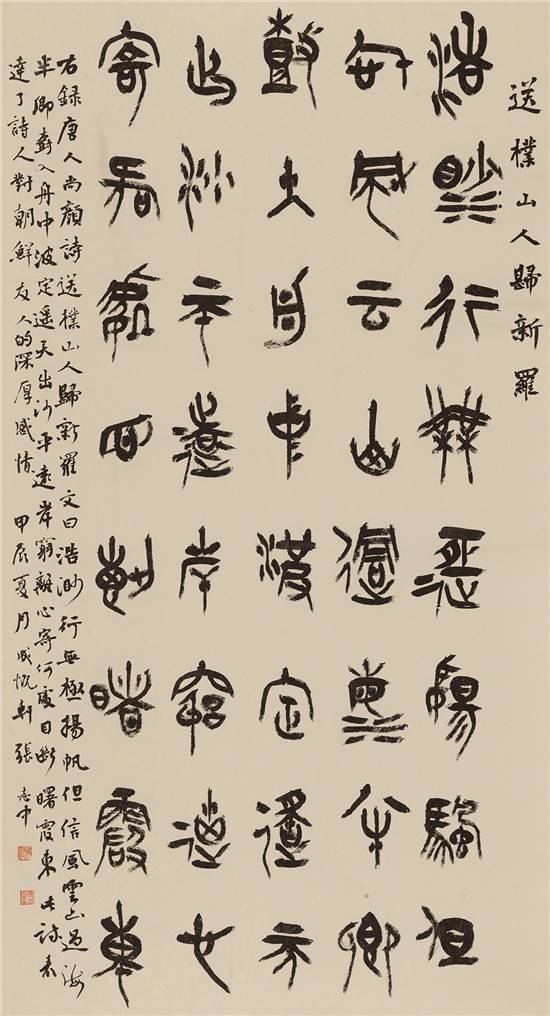 送樸山人歸新羅
浩渺行無極揚颿但
信風云山過海半鄉
尌入舟中波定遙天
出沙平遠岸窮離心
寄何處目斷曙霞東
右錄唐人尚顏詩送樸山人歸新羅文曰浩渺行無極揚帆但信風雲山過海
半鄉尌入舟中波定遙天出沙平遠岸窮離心寄何處目斷曙霞東此詩表
達了詩人對朝鮮友人的深厚感情 甲辰夏月 軒 張